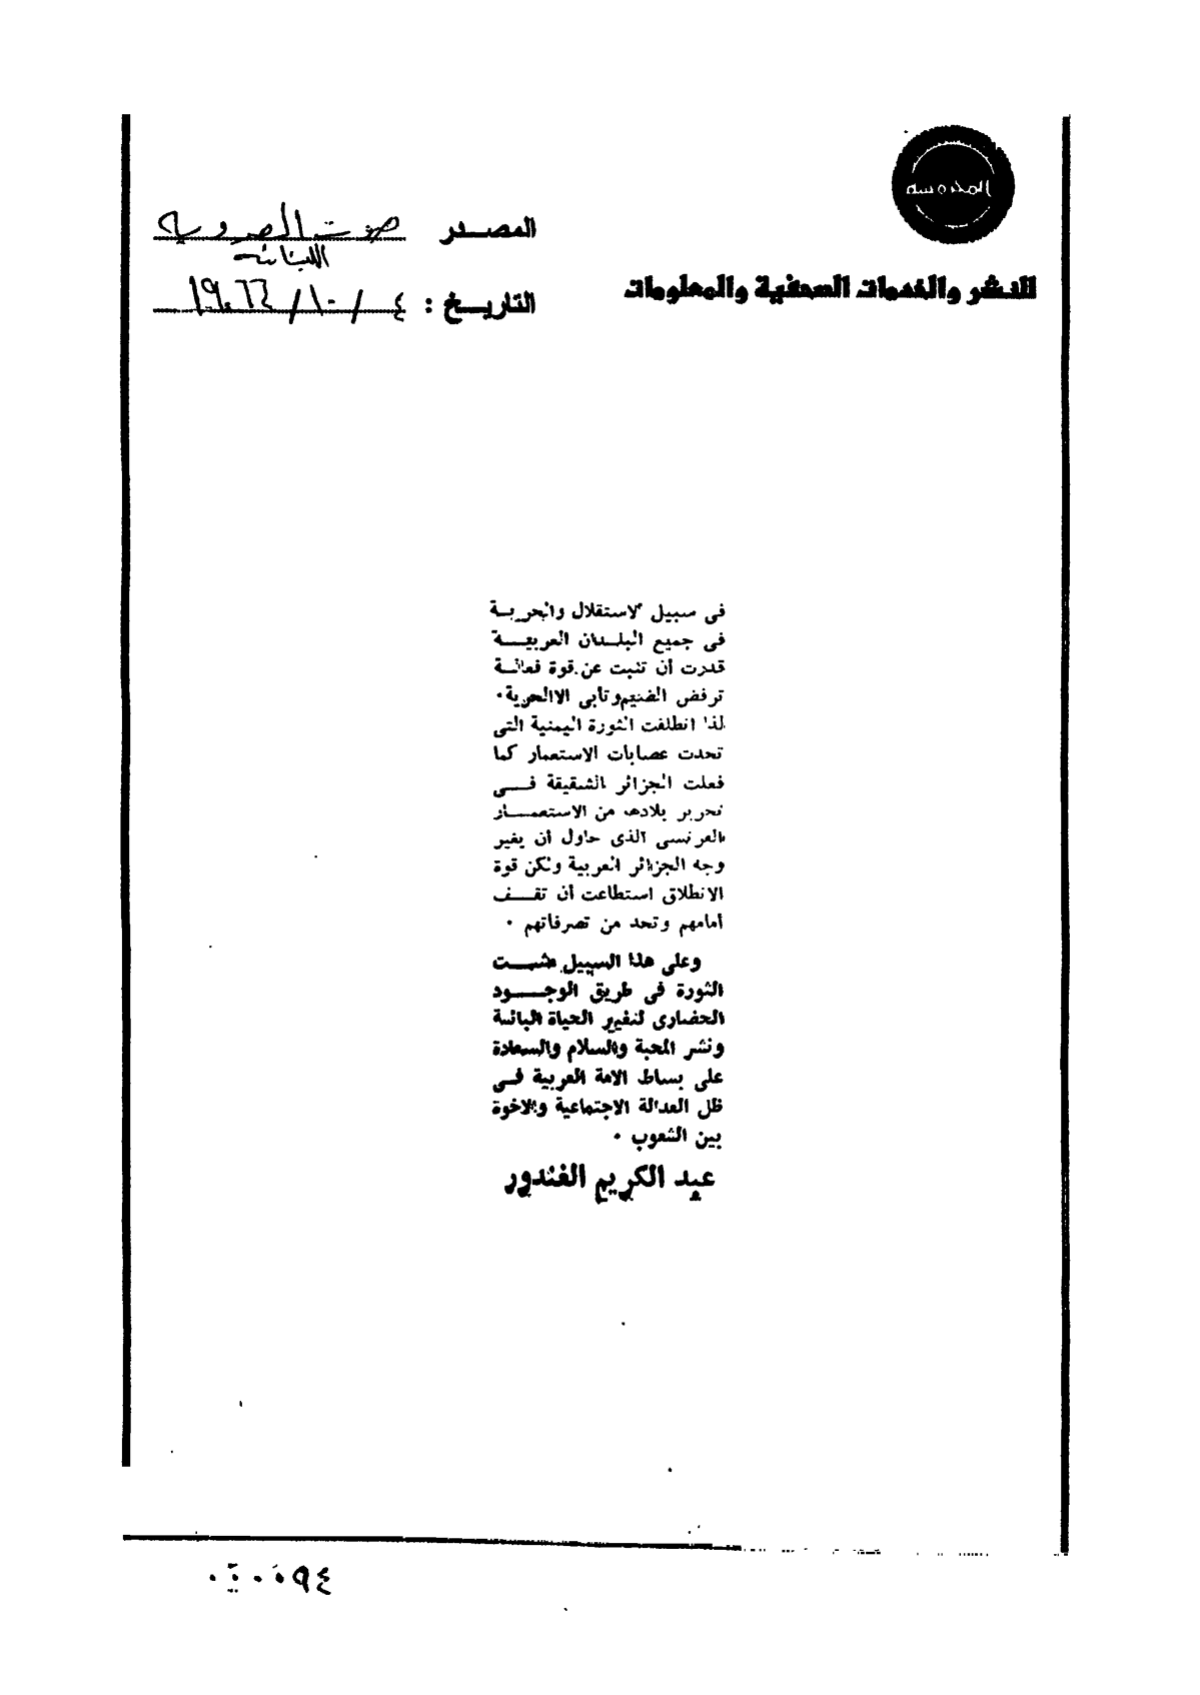 المحروسة
للنشر والخدمات الصحفية والمعلومات
المصدر صوت العروبة
اللبنانية
التاريخ : ٤ / ١٠ / ١٩٦٤
فى سبيل الاستقلال والحرية
فى جميع البلدان العربية
قدرت أن تثبت عن قوة فعالة
ترفض الضيم وتأبى الا الحرية ٠
لذا انطلقت الثورة اليمنية التى
تحدت عصابات الاستعمار كما
فعلت الجزائر الشقيقة فى
تحرير بلادها من الاستعمار
الفرنسى الذى حاول أن يغير
وجه الجزائر العربية ولكن قوة
الانطلاق استطاعت أن تقف
أمامهم وتحد من تصرفاتهم ٠
وعلى هذا السبيل مشت
الثورة فى طريق الوجود
الحضارى لتغيير الحياة البائسة
ونشر المحبة والسلام والسعادة
على بساط الامة العربية فى
ظل العدالة الاجتماعية والاخوة
بين الشعوب ٠
عبد الكريم الغندور